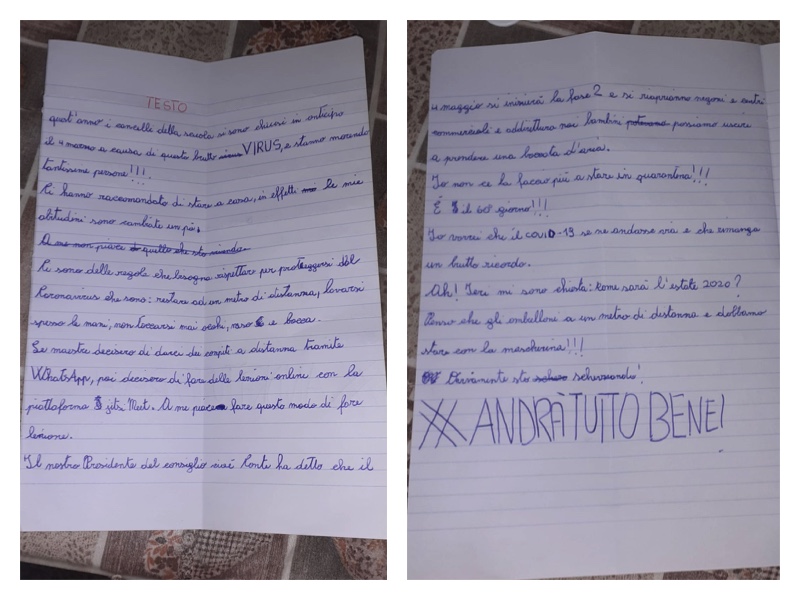 TESTO
quest'anno i cancelli della scuola si sono chiusi in anticipo
il 4 marzo a causa di questo brutto virus VIRUS, e stanno morendo
tantissime persone!!!
Ci hanno raccomandato di stare a casa, in effetti ma le mie
abitudini sono cambiate un po'.
A me non piace quello che sto vivendo.
Ci sono delle regole che bisogna rispettare per proteggersi dal
Coronavirus che sono: restare ad un metro di distanza, lavarsi
spesso le mani, non toccarsi mai occhi, naso e bocca.
Le maestre decisero di darci dei compiti a distanza tramite
WhatsApp, poi decisero di fare delle lezioni online con la
piattaforma Jitsi Meet. A me piace fare questo modo di fare
lezione.
Il nostro Presidente del consiglio cioè Conte ha detto che il
4 maggio si inizierà la fase 2 e si riapriranno negozi e centri
commerciali e addirittura noi bambini potevamo possiamo uscire
a prendere una boccata d'aria.
Io non ce la faccio più a stare in quarantena!!!
È il 60° giorno!!!
Io vorrei che il COVID-19 se ne andasse via e che rimanga
un brutto ricordo.
Ah! Ieri mi sono chiesta: come sarà l'estate 2020?
Penso che gli ombelloni a un metro di distanza e dobbiamo
stare con la mascherina!!!
Ovviamente sto scherzando!
ANDRÀ TUTTO BENE!